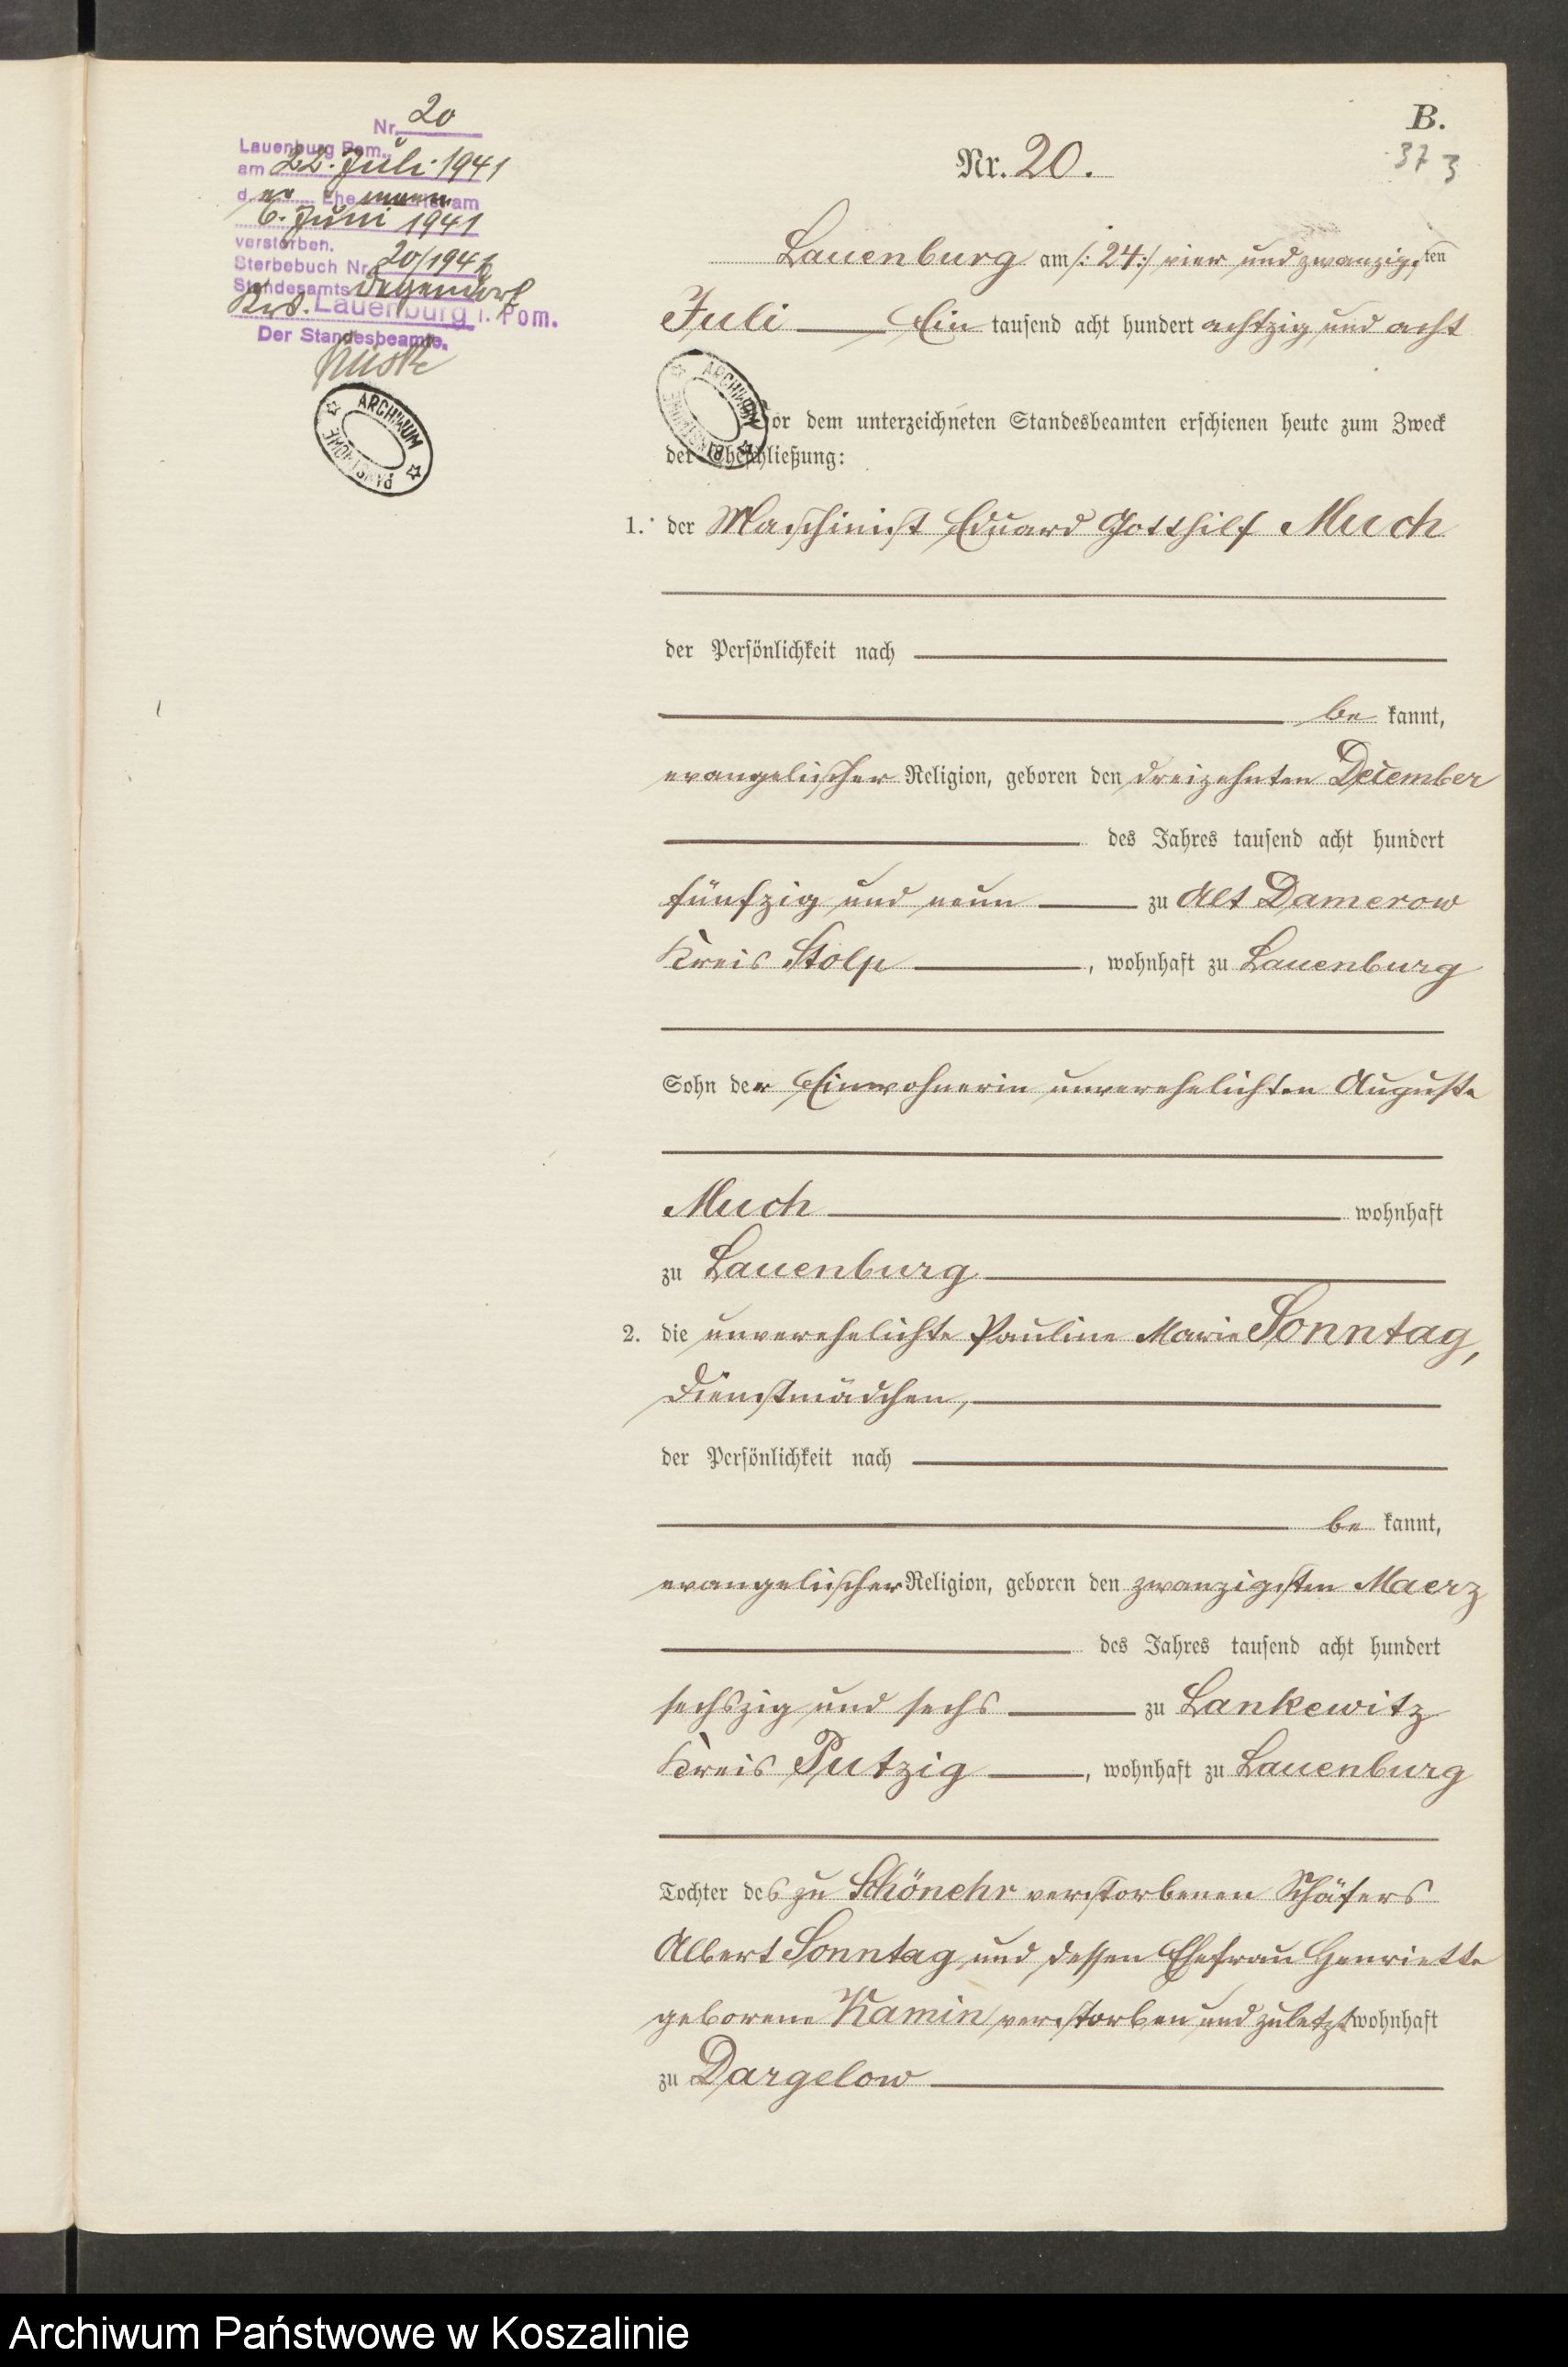 Nr. 20
Lauenburg Pom.,
am 22. Juli 1941
der Ehemann ist am
6. Juni 1941
verstorben.
Sterbebuch Nr. 20/1941
Standesamts Degendorf
Krs. Lauenburg i. Pom.
Der Standesbeamte.
ARCHIWUM PAŃSTWOWE
B.
37 3
Nr. 20.
Lauenburg am /:24:/ vier und zwanzigsten
Juli Ein tausend acht hundert achtzig und acht
ARCHIWUM PAŃSTWOWE
Vor dem unterzeichneten Standesbeamten erschienen heute zum Zweck
der Eheschließung:
1. der Maschinist Eduard Gotthilf Much
der Persönlichkeit nach
be kannt,
evangelischer Religion, geboren den dreizehnten December
des Jahres tausend acht hundert
fünfzig und neun zu Alt Damerow
Kreis Stolp, wohnhaft zu Lauenburg
Sohn der Einwohnerin unverehelichten Auguste
Much wohnhaft
zu Lauenburg
2. die unverehelichte Pauline Marie Sonntag,
Dienstmädchen,
der Persönlichkeit nach
be kannt,
evangelischer Religion, geboren den zwanzigsten Maerz
des Jahres tausend acht hundert
sechszig und sechs zu Lankewitz
Kreis Putzig, wohnhaft zu Lauenburg
Tochter des zu Schönehr verstorbenen Schäfers
Albert Sonntag und dessen Ehefrau Henriette
geborene Kamin verstorben und zuletzt wohnhaft
zu Dargelow
Archiwum Państwowe w Koszalinie